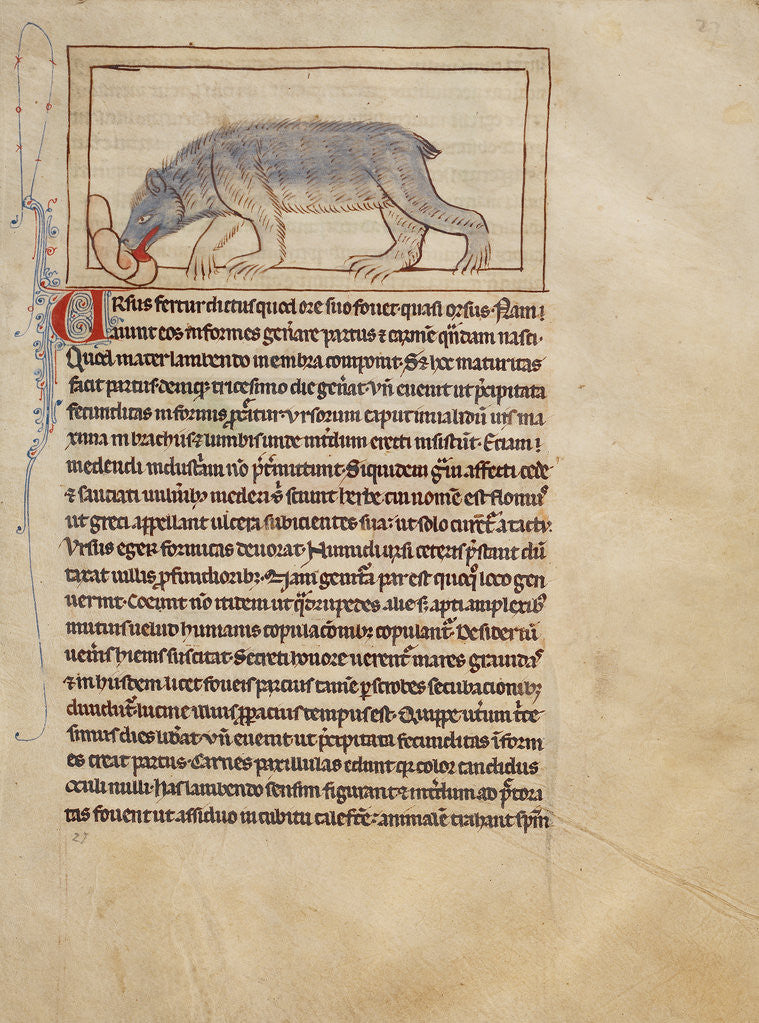 27
URsus fertur dictus quod ore suo fouet· quasi orsus· Nam ⁊
aiunt eos informes gen̄are partus ⁊ carnē q̄ndam nasci·
Quod mater lambendo in embra componit· S⁊ hoc maturitas
facit partus· deniq; tricesimo die gen̄at· vn̄ euenit ut p̄cipitata
fecunditas informis p̄creatur· vrsorum caput inualidū uis ma
xima in brachiis ⁊ lumbis unde int̄dum erecti insistūt· Etiam ⁊
medendi industriam nō p̄t̄mittunt· Siquidem gͣui affecti cede
⁊ sauciati uuln̄ibꝫ mederi s̄ sciunt herbe cui nomē est flomus
ut greci appellant ulcera subicientes sua: ut solo curent᷑ a tactu·
Vrsus eger formicas deuorat· Numidi ursi ceteris p̄stant dū
taxat uillis ꝓfundioribꝫ· Nam genit᷑a par est quoqͦ loco gen
uerint· Coeunt nō itidem ut q̄drupedes alie s; apti amplexibꝰ
mutuis uelud humanis copulac̄onibꝫ copulant᷑· Desideriū
uen̄is hiems suscitat· Secreti honore uerent᷑ mares grauidas
⁊ in hisdem licet foueis partius tam̄e p̄ scrobes secubationibꝫ
diuidunt᷑· lucine illius ꝓpatius tempus est· Quippe ut̄um t̄ce
simus dies lib̄at· vn̄ euenit ut p̄cipitata fecunditas īform
es creat partus· Carnes paxillulas edunt qͥꝫ color candidus
oculi nulli· has lambendo sensim figurant ⁊ int̄dum ad p̄ctora
tas fouent ut assiduo incubitu calefc̄te: animalē trahant sp̄m
27